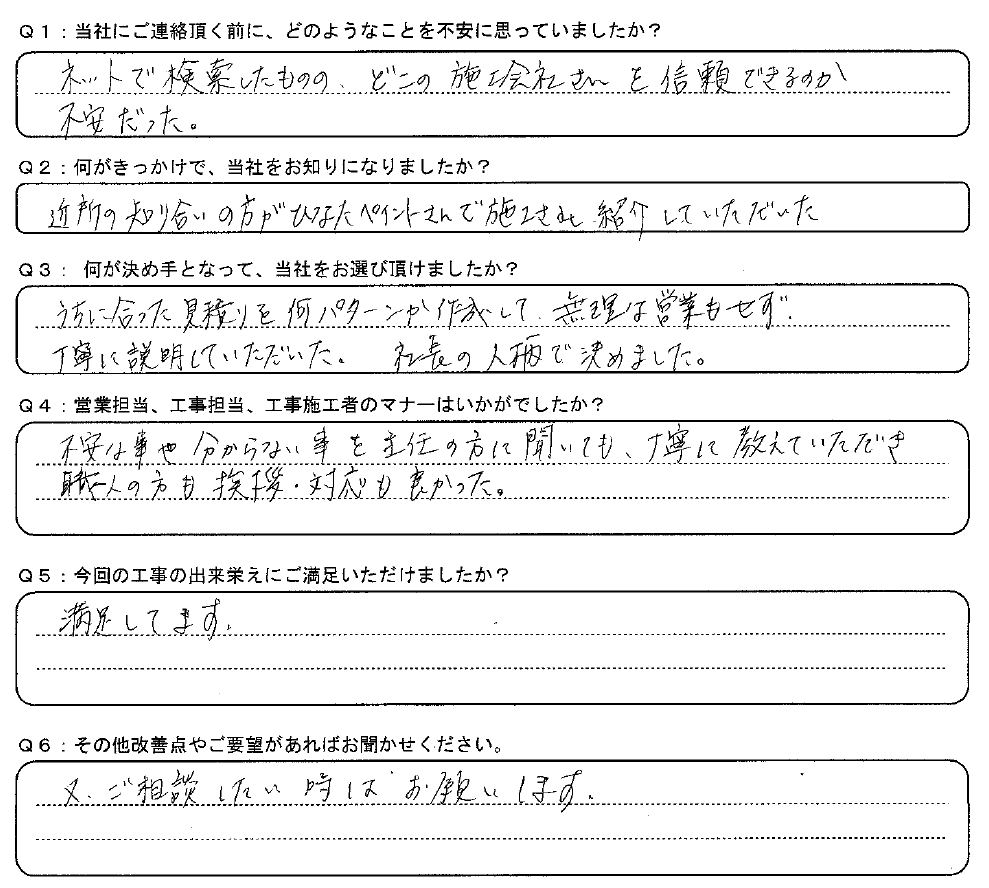 Q1:当社にご連絡頂く前に、どのようなことを不安に思っていましたか?
ネットで検索したものの、どこの施工会社さんを信頼できるのか
不安だった。
Q2:何がきっかけで、当社をお知りになりましたか?
近所の知り合いの方がひなたペイントさんで施工され紹介していただいた
Q3: 何が決め手となって、当社をお選び頂けましたか?
うちに合った見積りを何パターンか作成して、無理な営業もせず、
丁寧に説明していただいた。 社長の人柄で決めました。
Q4:営業担当、工事担当、工事施工者のマナーはいかがでしたか?
不安な事や分からない事を主任の方に聞いても、丁寧に教えていただき
職人の方も挨拶・対応も良かった。
Q5:今回の工事の出来栄えにご満足いただけましたか?
満足してます。
Q6:その他改善点やご要望があればお聞かせください。
又、ご相談したい時はお願いします。